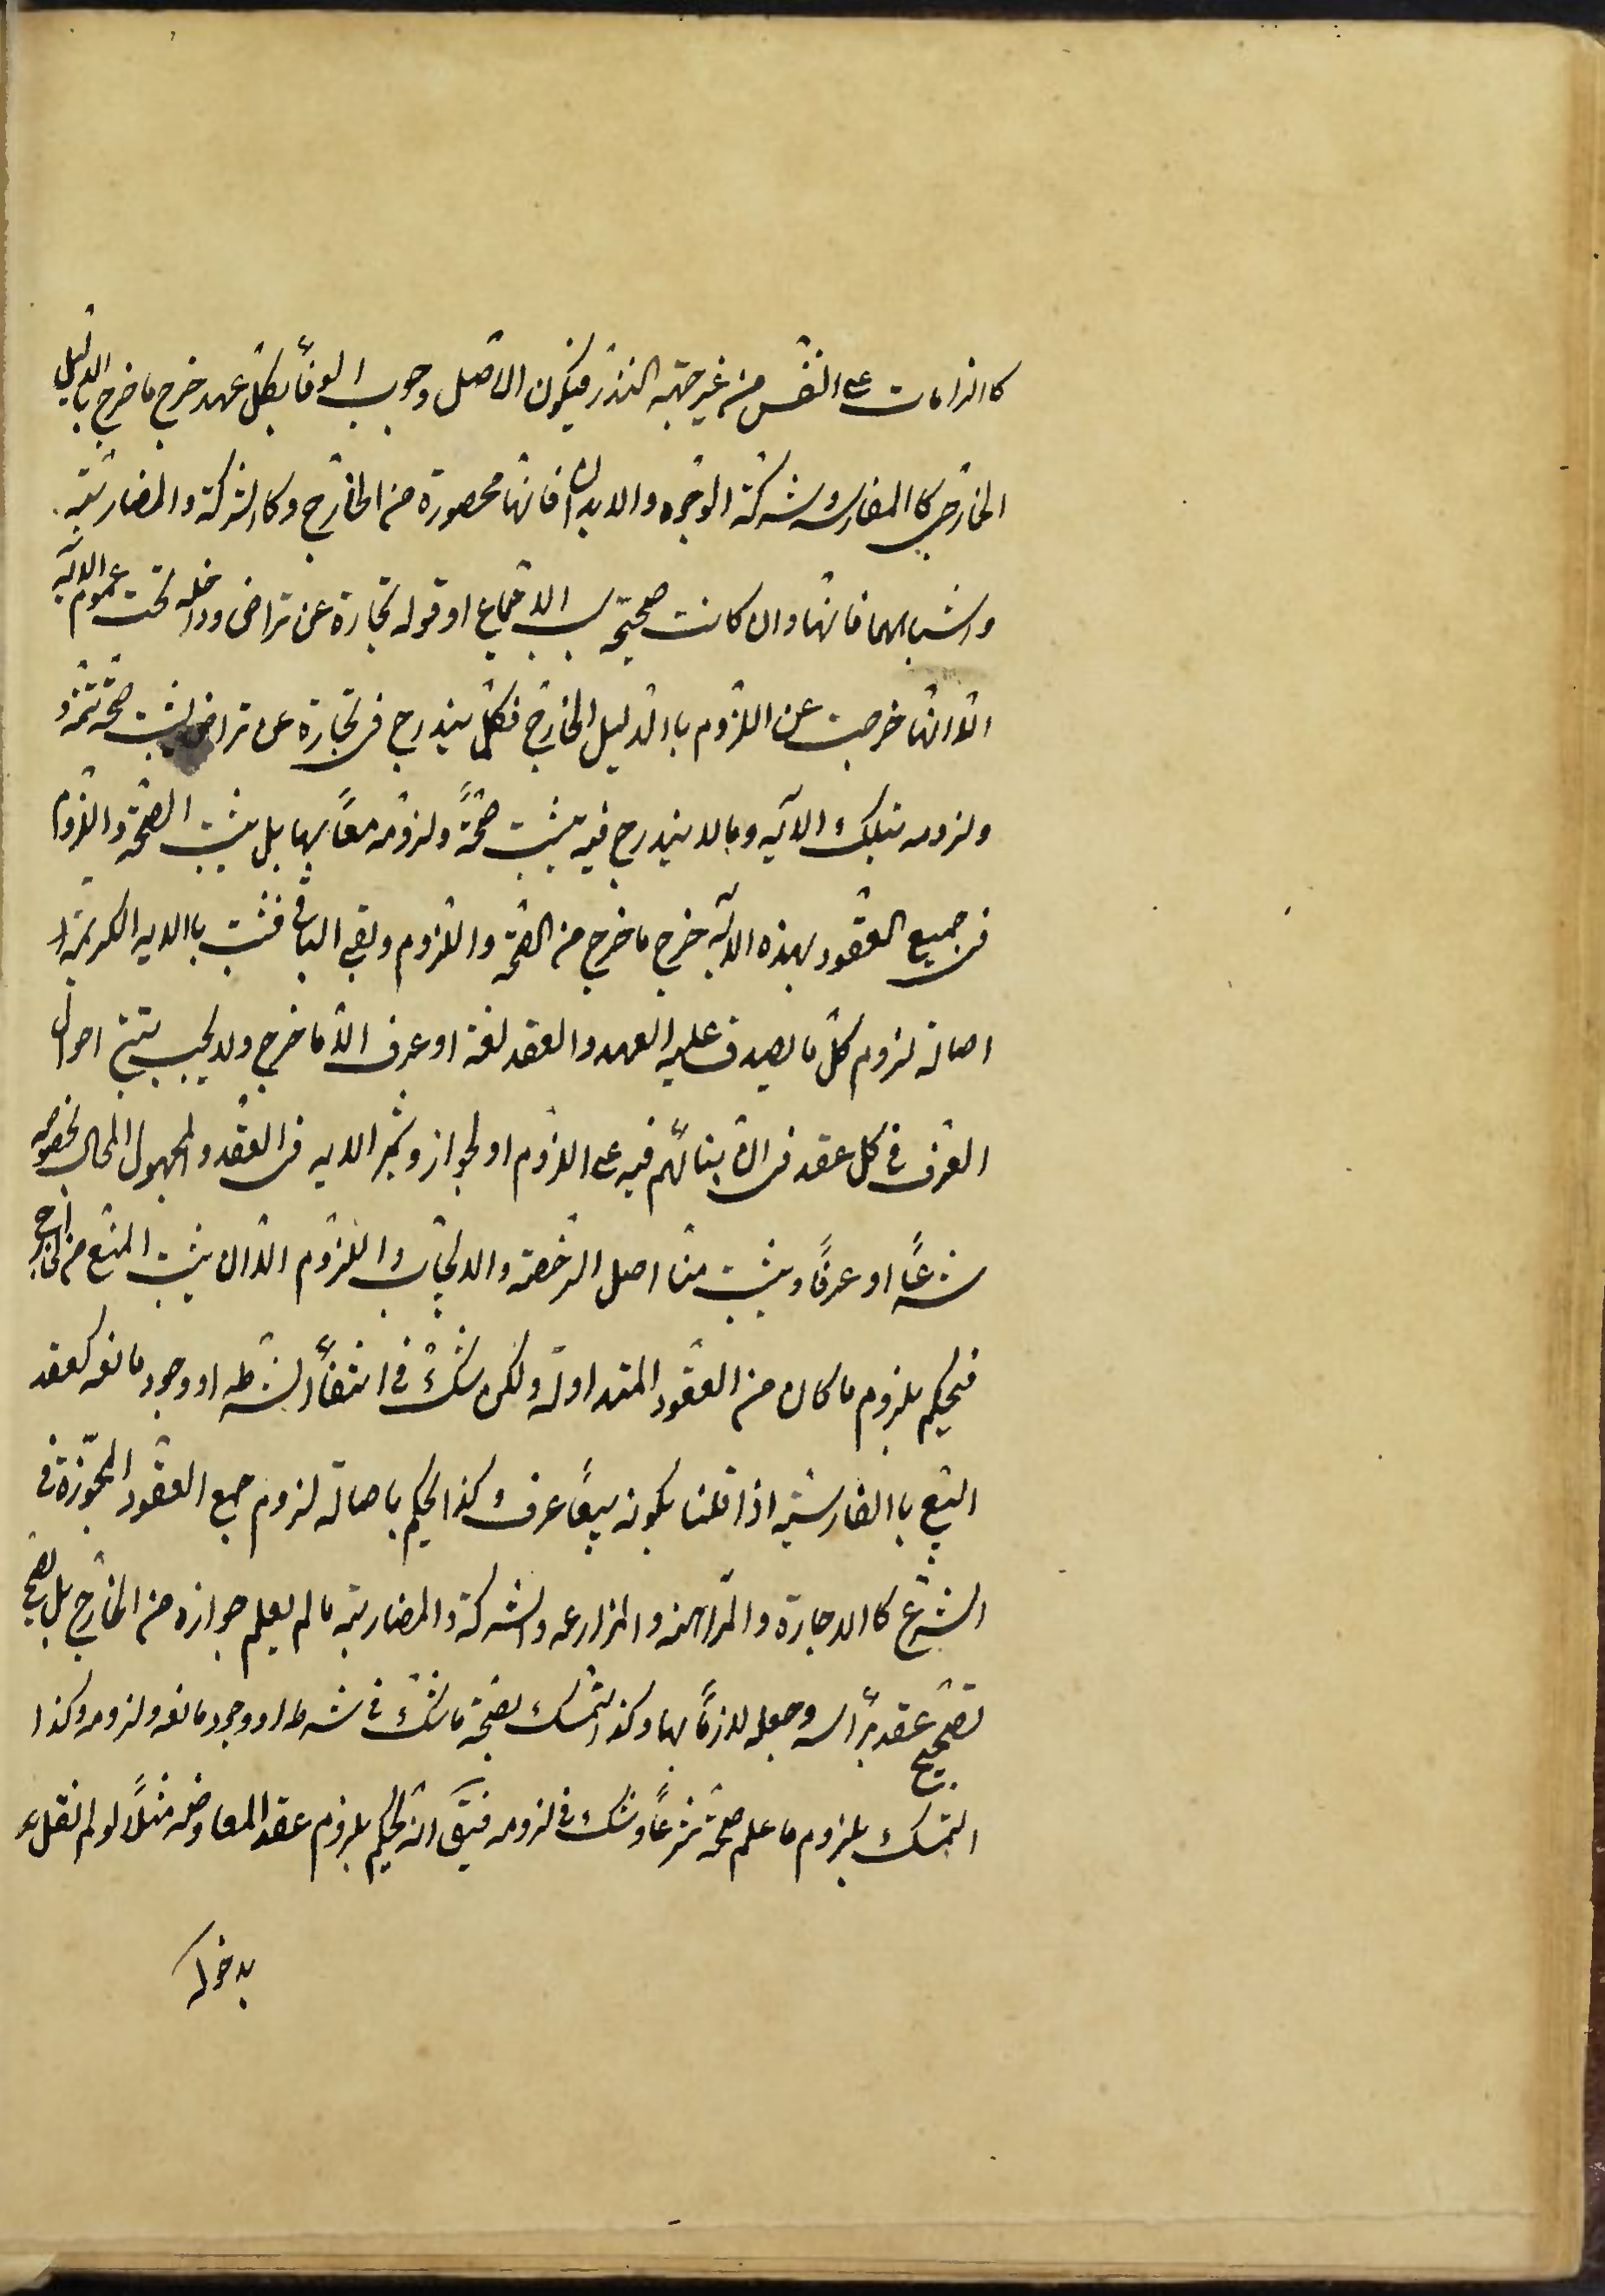 كالزامات على النفس من غير جهة النذر فيكون الاصل وجوب الوفاء بكل عهد خرج ما خرج بالدليل
الخارجى كالمغارسه وشركة الوجوه والابدان فانها محصورة من الخارج وكالشركة والمضاربة
واشباههما فانها وان كانت صحيحة بسبب الاجماع او قوله تجارة عن تراض وداخله تحت عموم الاية
الا انها خرجت عن اللزوم باالدليل الخارج فكل يندرج فى تجارة عن تراض يثبت صحته
ولزومه بتلك الاية وما لا يندرج فيه يثبت صحة ولزومه معاً بها بل يثبت الصحة واللزوم
فى جميع العقود بهذه الاية خرج ما خرج من الصحة واللزوم وبقى الباقى فثبت باالاية الكريمة
اصالة لزوم كل ما يصدق عليه العهد والعقد لغة او عرف الا ما خرج ولا يجب تتبع احوال
العرف فى كل عقد فى ان بنائهم فيه على اللزوم او الجواز الاية فى العقد والمجهول الحال بخصوصه
شرعاً او عرفاً ويثبت منا اصل الرخصة والايجاب واللزوم الا ان يثبت المنع من الخارج
فيحكم بلزوم ما كان من العقود المتداولة ولكن شك فى انتفاء الشرطه او وجود مانعه كعقد
البيع باالفارسية اذا قلنا بكونه بيعاً عرف وكذا الحكم باصالة لزوم جميع العقود المجوزة فى
الشرع كاالاجارة والمراهنه والمزارعه والشركة والمضاربة ما لم يعلم جوازه من الخارج بل يصح
تصحيح عقد برأسه وجعله لازماً بها وكذا التمسك بصحة ما شك فى شرطه او وجود مانعه ولزومه وكذا
التمسك بلزوم ما علم صحة شرعاً وشك فى لزومه فيبق انه يحكم بلزوم عقد المعاوضه مثلاً لو لم نقل
بدخوله